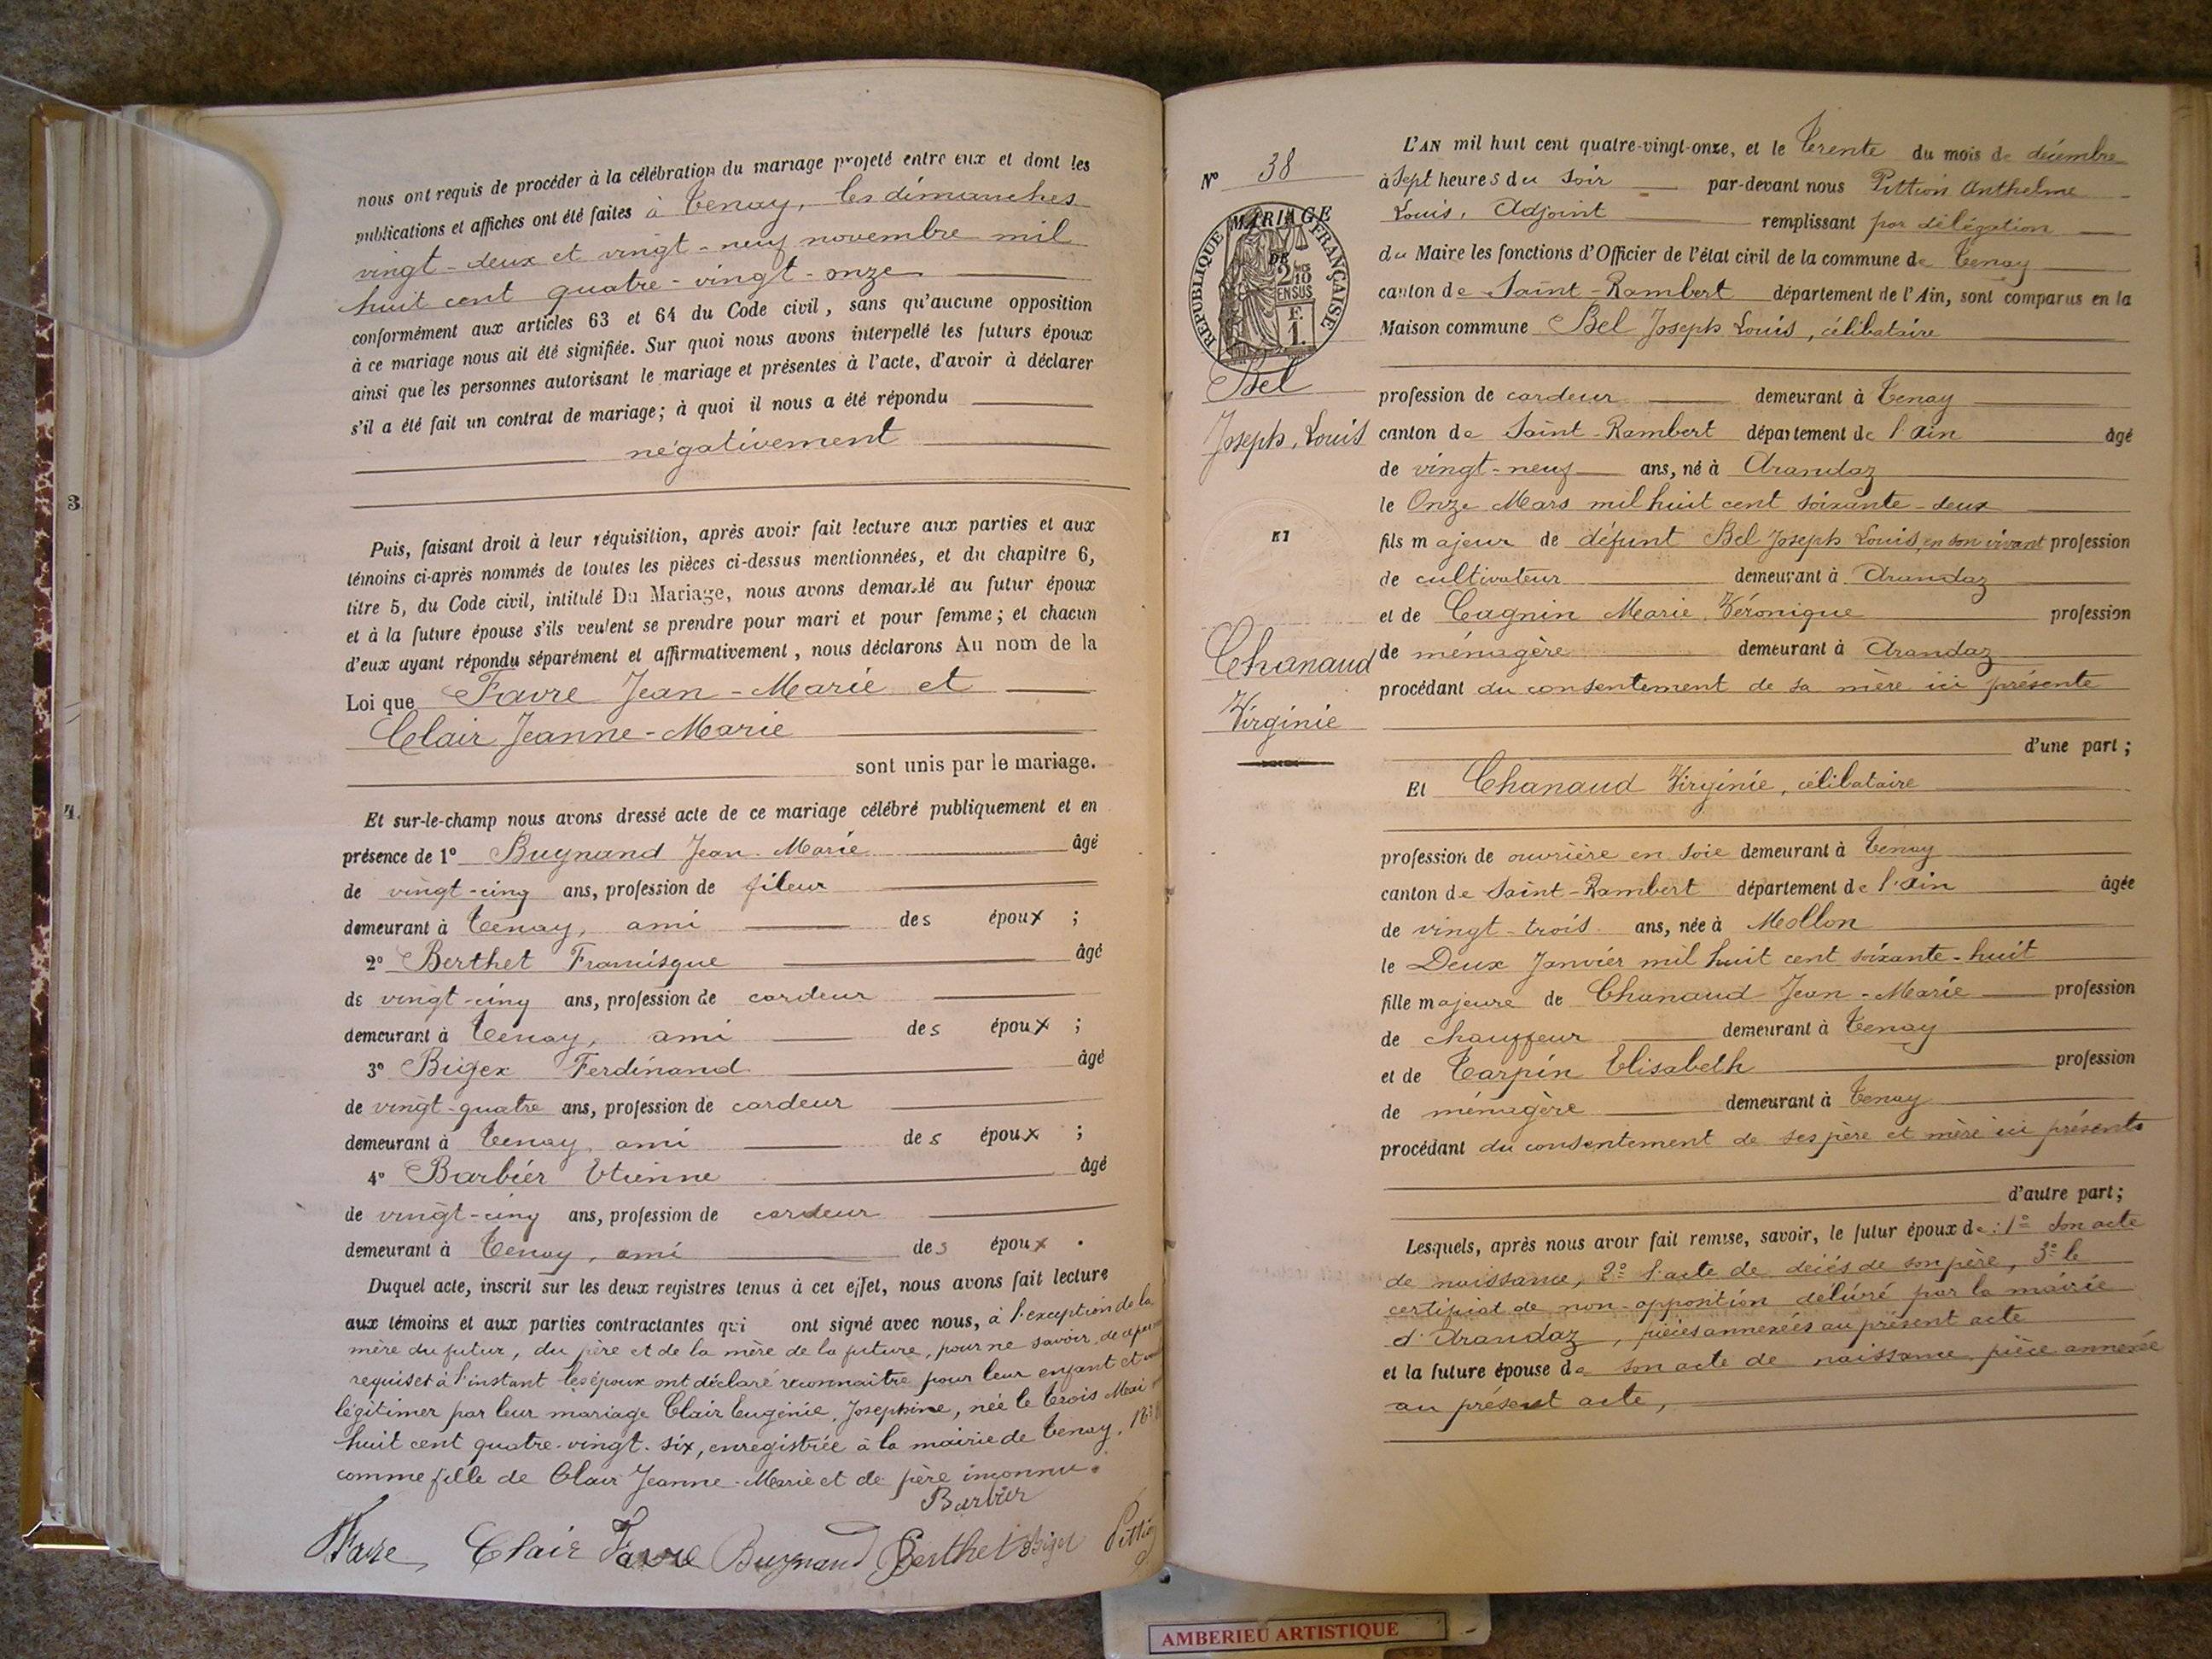 nous ont requis de procéder à la célébration du mariage projeté entre eux et dont les
publications et affiches ont été faites à Tenay, les dimanches
vingt-deux et vingt-neuf novembre mil
huit cent quatre-vingt-onze
conformément aux articles 63 et 64 du Code civil, sans qu'aucune opposition
à ce mariage nous ait été signifiée. Sur quoi nous avons interpellé les futurs époux
ainsi que les personnes autorisant le mariage et présentes à l'acte, d'avoir à déclarer
s'il a été fait un contrat de mariage; à quoi il nous a été répondu
négativement
3
Puis, faisant droit à leur réquisition, après avoir fait lecture aux parties et aux
témoins ci-après nommés de toutes les pièces ci-dessus mentionnées, et du chapitre 6,
titre 5, du Code civil, intitulé Du Mariage, nous avons demandé au futur époux
et à la future épouse s'ils veulent se prendre pour mari et pour femme; et chacun
d'eux ayant répondu séparément et affirmativement, nous déclarons Au nom de la
Loi que Favre Jean-Marie et
Clair Jeanne-Marie
sont unis par le mariage.
4.
Et sur-le-champ nous avons dressé acte de ce mariage célébré publiquement et en
présence de 1° Buynand Jean Marie âgé
de vingt-cinq ans, profession de fileur
demeurant à Tenay, ami des époux ;
2° Berthet Francisque âgé
de vingt-cinq ans, profession de cardeur
demeurant à Tenay, ami des époux ;
3° Bigex Ferdinand âgé
de vingt-quatre ans, profession de cardeur
demeurant à Tenay, ami des époux ;
4° Barbier Etienne âgé
de vingt-cinq ans, profession de cardeur
demeurant à Tenay, ami des époux .
Duquel acte, inscrit sur les deux registres tenus à cet effet, nous avons fait lecture
aux témoins et aux parties contractantes qui ont signé avec nous, à l'exception de la
mère du futur, du père et de la mère de la future, pour ne savoir, de ce
requis et à l'instant les époux ont déclaré reconnaître pour leur enfant et
légitimer par leur mariage Clair Eugénie, Josephine, née le trois Mai
huit cent quatre-vingt-six, enregistrée à la mairie de Tenay,
comme fille de Clair Jeanne-Marie et de père inconnu.
Barbier
Favre Clair Favre Buynand Berthet Bigex Pittion
N° 38
MARIAGE
REPUBLIQUE FRANÇAISE
DE
2/10
EN SUS
F.
1.
Bel
Joseph, Louis
ET
Chanaud
Virginie
L'AN mil huit cent quatre-vingt-onze, et le trente du mois de décembre
à Sept heures du soir par-devant nous Pittion Anthelme
Louis, Adjoint remplissant par délégation
du Maire les fonctions d'Officier de l'état civil de la commune de Tenay
canton de Saint-Rambert département de l'Ain, sont comparus en la
Maison commune Bel Joseph Louis, célibataire
profession de cardeur demeurant à Tenay
canton de Saint-Rambert département de l'Ain âgé
de vingt-neuf ans, né à Arandaz
le Onze Mars mil huit cent soixante-deux
fils majeur de défunt Bel Joseph Louis, en son vivant profession
de cultivateur demeurant à Arandaz
et de Cagnin Marie Véronique profession
de ménagère demeurant à Arandaz
procédant du consentement de sa mère ici présente
d'une part ;
Et Chanaud Virginie, célibataire
profession de ouvrière en soie demeurant à Tenay
canton de Saint-Rambert département de l'Ain âgée
de vingt-trois ans, née à Mollon
le Deux Janvier mil huit cent soixante-huit
fille majeure de Chanaud Jean-Marie profession
de chauffeur demeurant à Tenay
et de Tarpin Elisabeth profession
de ménagère demeurant à Tenay
procédant du consentement de ses père et mère ici présents
d'autre part ;
Lesquels, après nous avoir fait remise, savoir, le futur époux de : 1° Son acte
de naissance, 2° l'acte de décés de son père, 3° le
certificat de non-opposition délivré par la mairie
d'Arandaz, pièces annexées au présent acte
et la future épouse de son acte de naissance pièce annexée
au présent acte,
AMBERIEU ARTISTIQUE